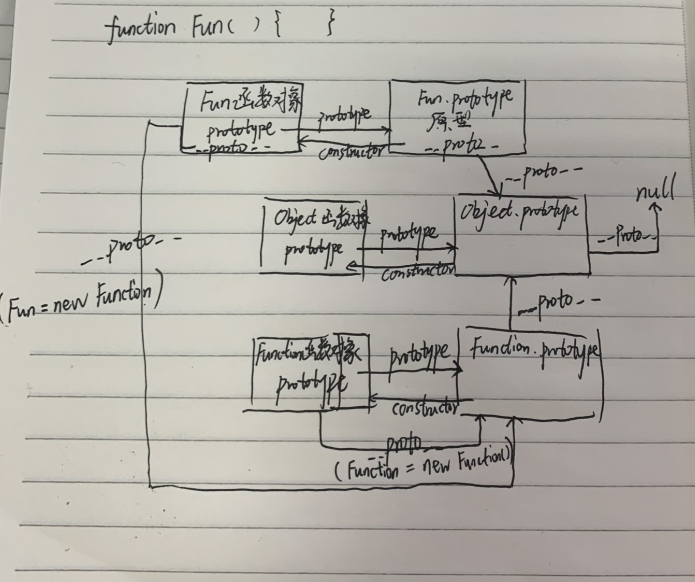 function Fun( ) { }
Fun函数对象
prototype
__proto__
prototype
constructor
Fun.prototype
原型
__proto__
__proto__
Object函数对象
prototype
prototype
constructor
Object.prototype
null
__proto__
__proto__
(Fun = new Function)
__proto__
Function函数对象
prototype
prototype
constructor
Function.prototype
__proto__
(Function = new Function())